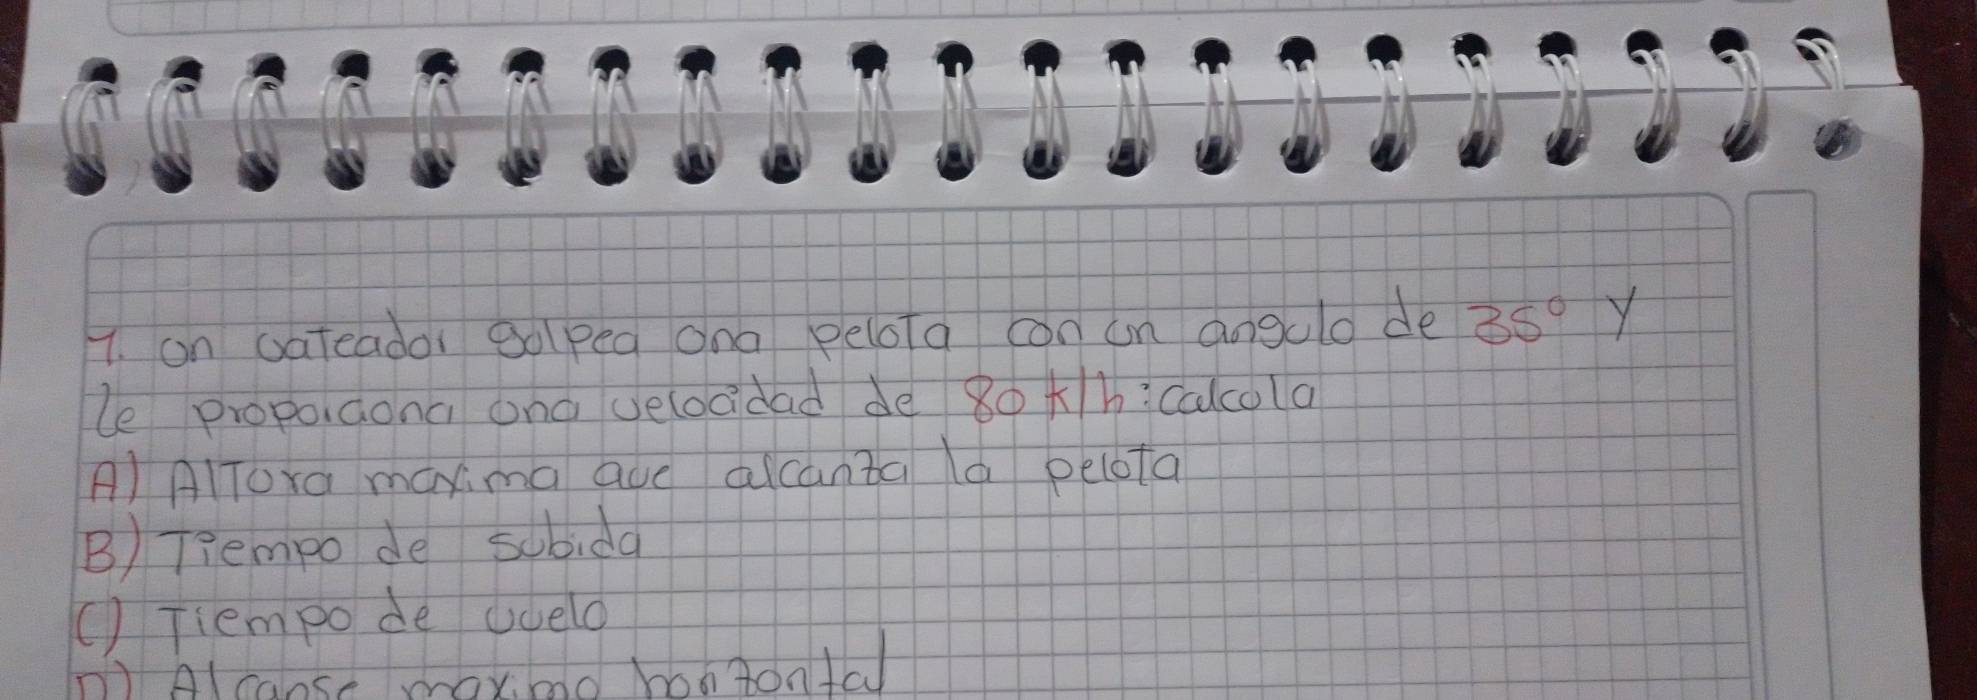 7. on vateador golpea ona pelota con un angulo de 35° y
le proporciona ona velocidad de 80 k/h: calcola
A) Altora maxima que alcanza la pelota
B) Tiempo de subida
C) Tiempo de vuelo
D) Alcanse maximo horizontal